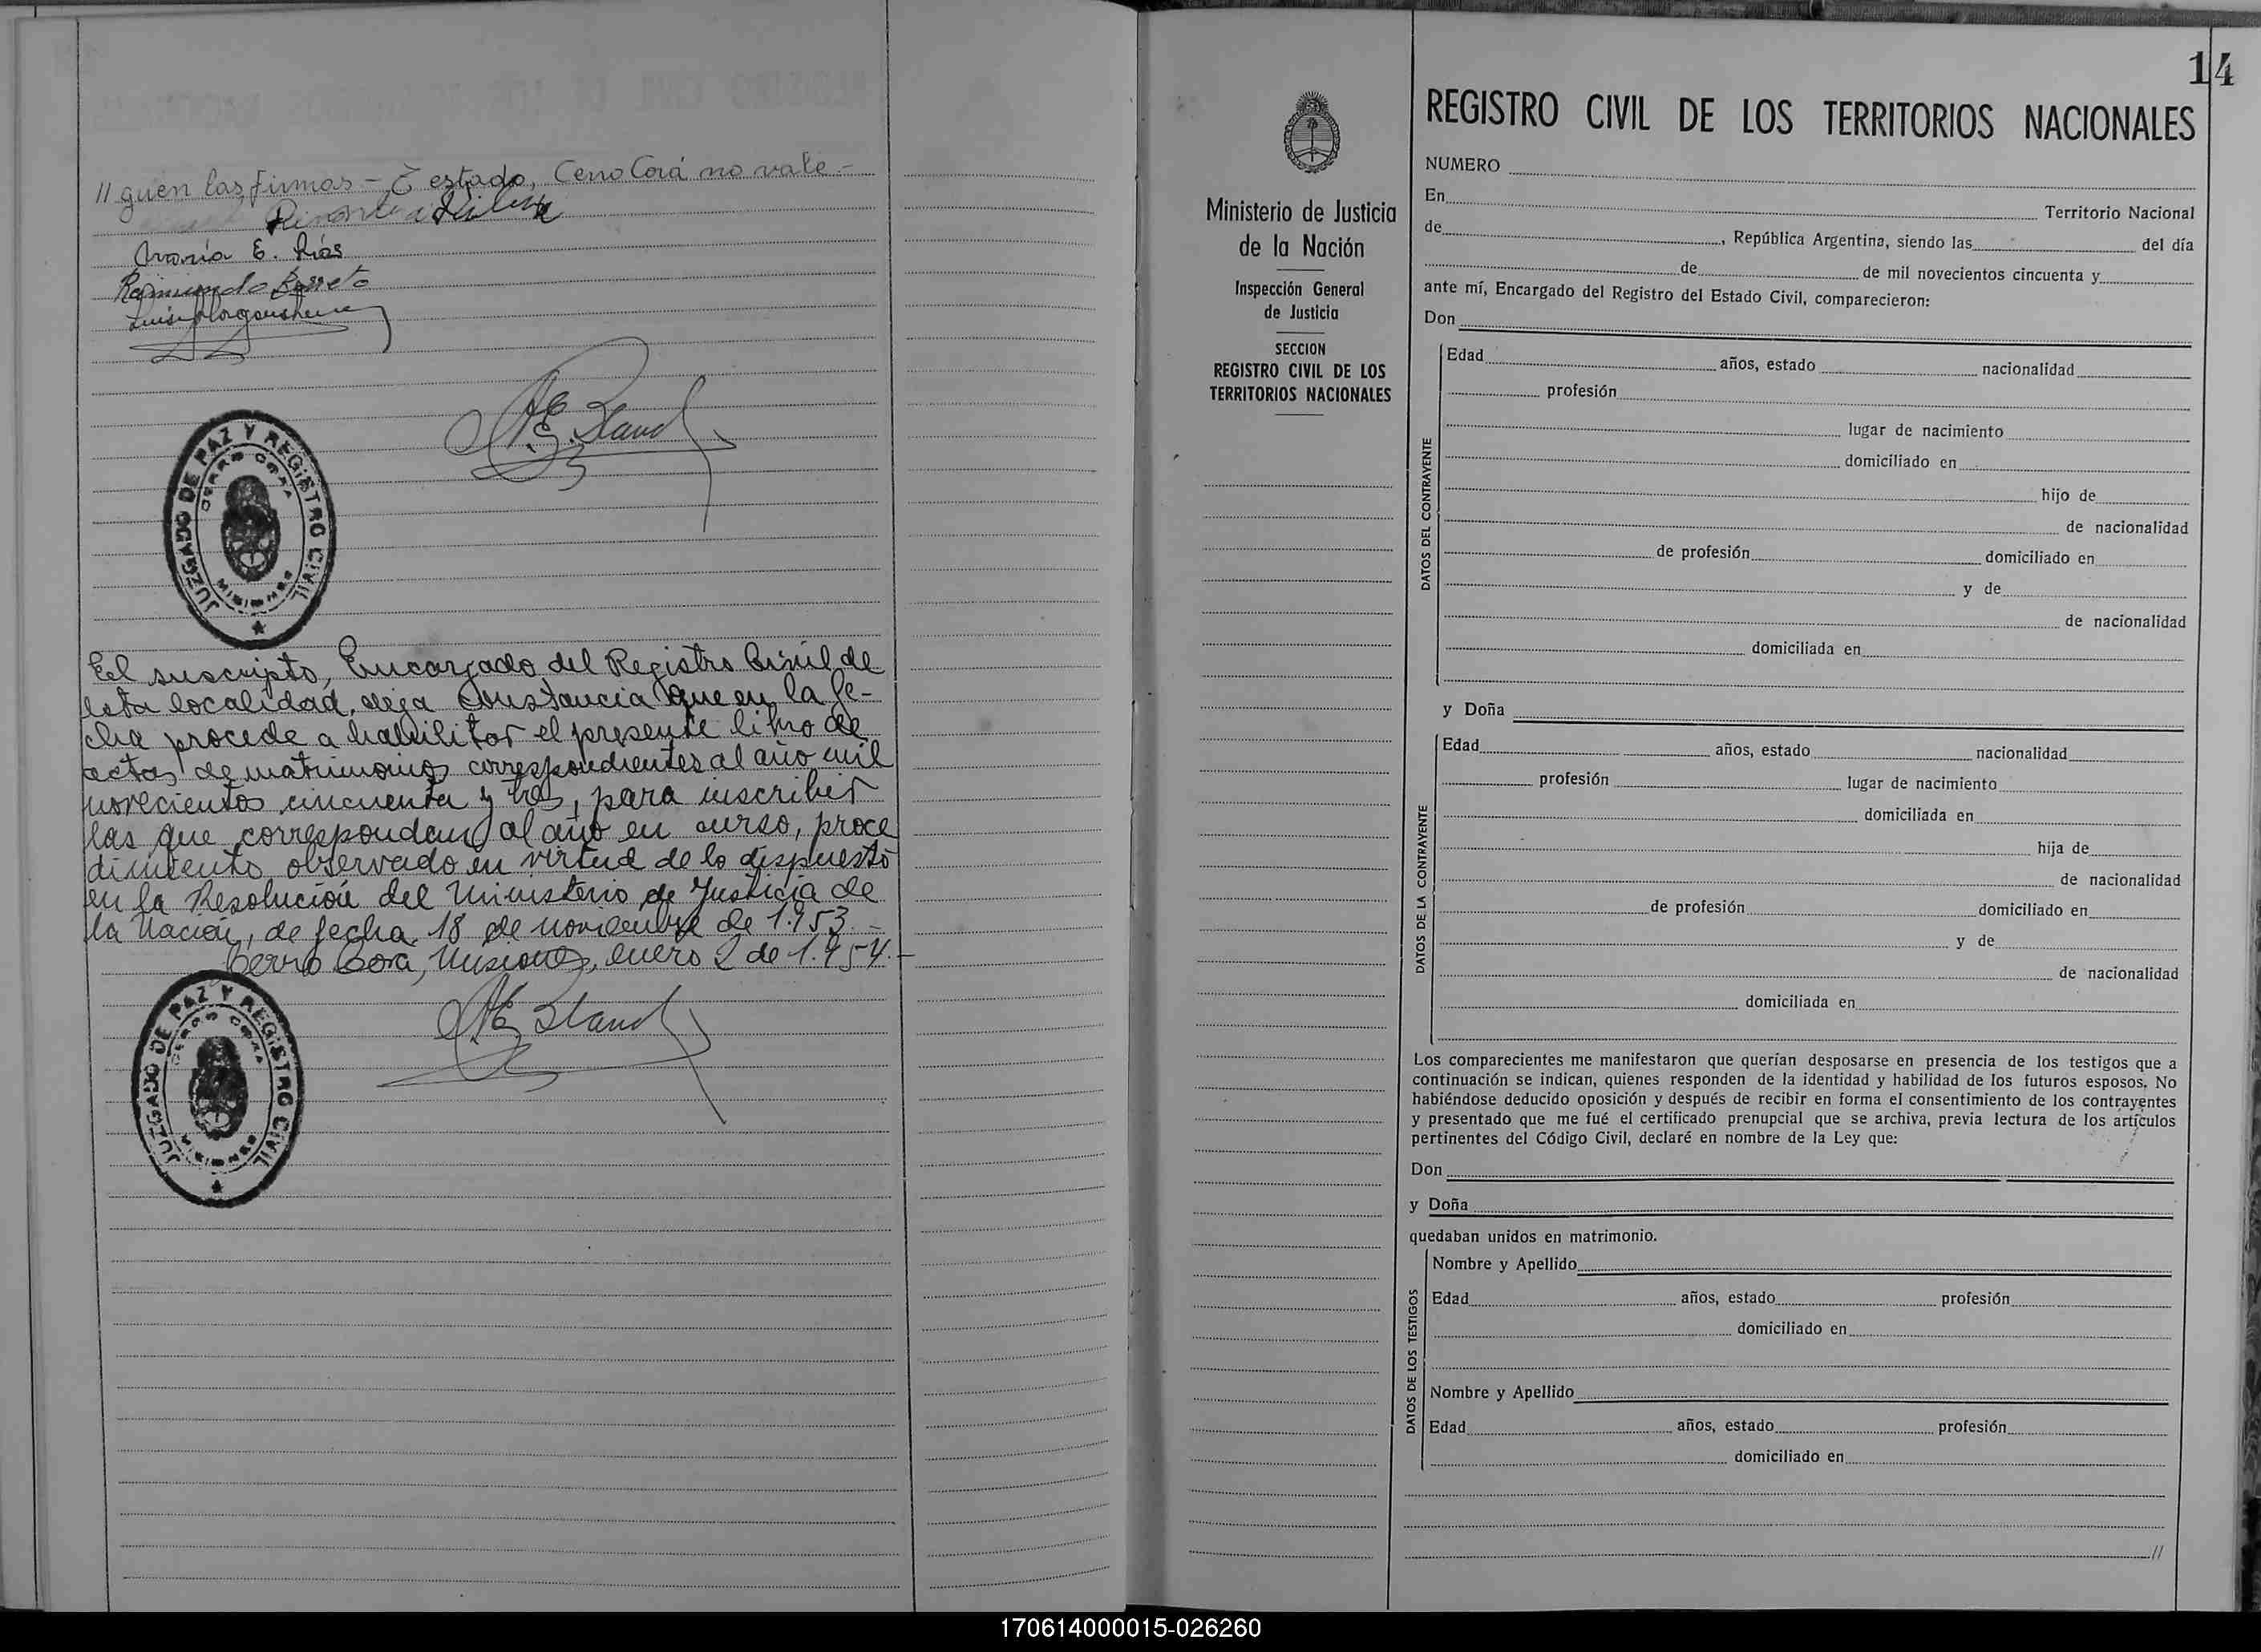 // guen las firmas – E estado, Cerro Corá no vale.–
María E. Ríos
Raimundo Barreto
JUZGADO DE PAZ Y REGISTRO CIVIL
CERRO CORA
MISIONES
El suscripto, Encargado del Registro Civil de
esta localidad, deja constancia que en la fe-
cha procede a habilitar el presente libro de
actas de matrimonios correspondientes al año mil
novecientos cincuenta y tres, para inscribir
las que correspondan al año en curso, proce
dimiento observado en virtud de lo dispuesto
en la Resolución del Ministerio de Justicia de
la Nación, de fecha 18 de noviembre de 1.953.–
Cerro Cora, Misiones, enero 2 de 1.954.–
JUZGADO DE PAZ Y REGISTRO CIVIL
CERRO CORA
MISIONES
14
Ministerio de Justicia
de la Nación
Inspección General
de Justicia
SECCION
REGISTRO CIVIL DE LOS
TERRITORIOS NACIONALES
REGISTRO CIVIL DE LOS TERRITORIOS NACIONALES
NUMERO
En Territorio Nacional
de , República Argentina, siendo las del día
de de mil novecientos cincuenta y
ante mí, Encargado del Registro del Estado Civil, comparecieron:
Don
DATOS DEL CONTRAYENTE
Edad años, estado nacionalidad
profesión
lugar de nacimiento
domiciliado en
hijo de
de nacionalidad
de profesión domiciliado en
y de
de nacionalidad
domiciliada en
y Doña
DATOS DE LA CONTRAYENTE
Edad años, estado nacionalidad
profesión lugar de nacimiento
domiciliada en
hija de
de nacionalidad
de profesión domiciliado en
y de
de nacionalidad
domiciliada en
Los comparecientes me manifestaron que querían desposarse en presencia de los testigos que a
continuación se indican, quienes responden de la identidad y habilidad de los futuros esposos. No
habiéndose deducido oposición y después de recibir en forma el consentimiento de los contrayentes
y presentado que me fué el certificado prenupcial que se archiva, previa lectura de los artículos
pertinentes del Código Civil, declaré en nombre de la Ley que:
Don
y Doña
quedaban unidos en matrimonio.
DATOS DE LOS TESTIGOS
Nombre y Apellido
Edad años, estado profesión
domiciliado en
Nombre y Apellido
Edad años, estado profesión
domiciliado en
//
170614000015-026260